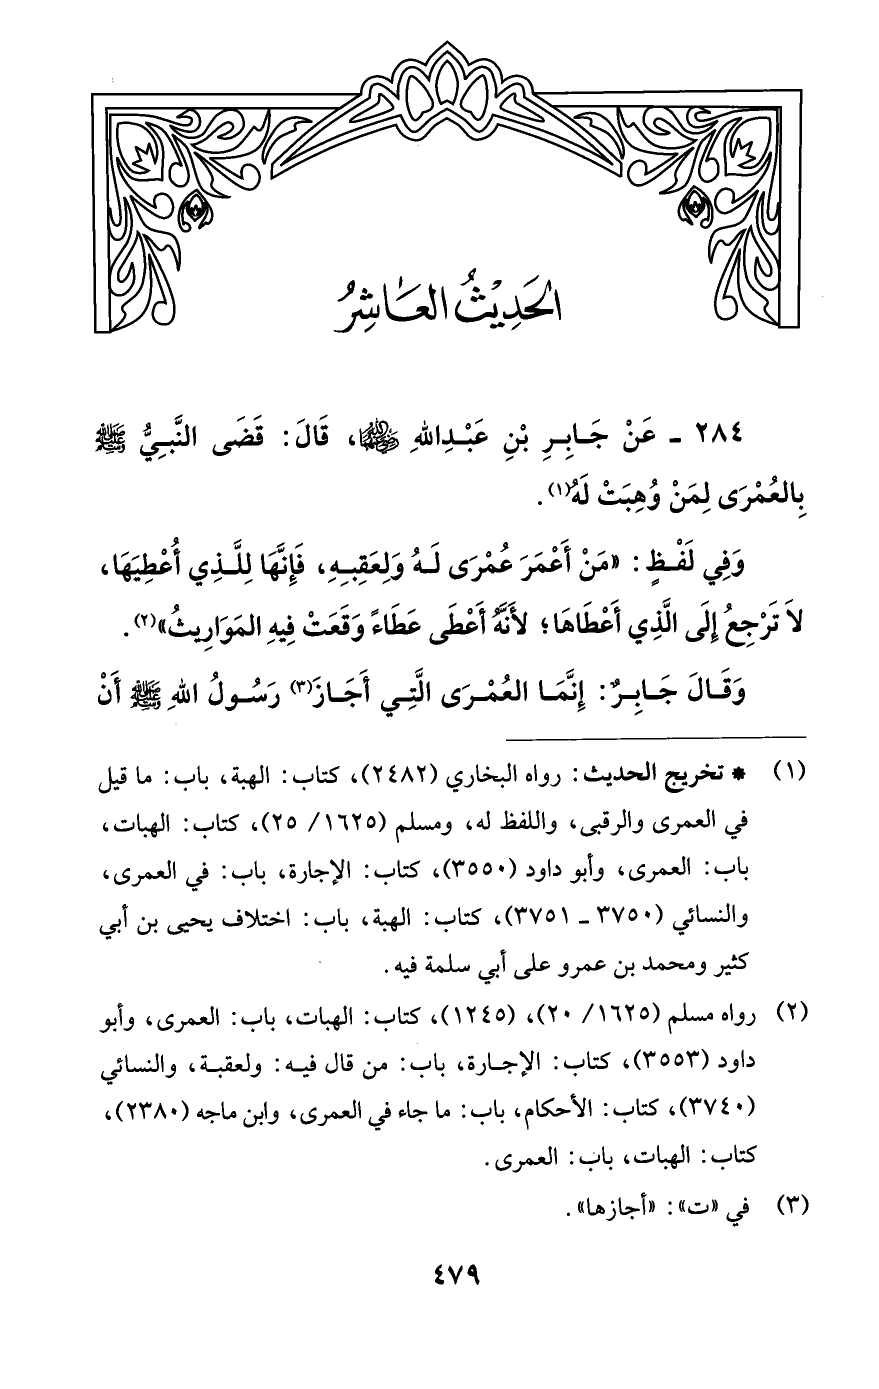 الحَدِيْثُ العَاشِرُ
٢٨٤ ـ عَنْ جَابِرِ بْنِ عَبْدِاللهِ ﵄، قَالَ: قَضَى النَّبِيُّ ﷺ
بِالعُمْرَى لِمَنْ وُهِبَتْ لَهُ(١).
وَفِي لَفْظٍ: «مَنْ أَعْمَرَ عُمْرَى لَهُ وَلِعَقِبِهِ، فَإِنَّهَا لِلَّذِي أُعْطِيَهَا،
لاَ تَرْجِعُ إِلَى الَّذِي أَعْطَاهَا؛ لأَنَّهُ أَعْطَى عَطَاءً وَقَعَتْ فِيهِ المَوَارِيثُ»(٢).
وَقَالَ جَابِرٌ: إِنَّمَا العُمْرَى الَّتِي أَجَازَ(٣) رَسُولُ اللهِ ﷺ أَنْ
(١) * تخريج الحديث: رواه البخاري (٢٤٨٢)، كتاب: الهبة، باب: ما قيل
في العمرى والرقبى، واللفظ له، ومسلم (١٦٢٥/ ٢٥)، كتاب: الهبات،
باب: العمرى، وأبو داود (٣٥٥٠)، كتاب: الإجارة، باب: في العمرى،
والنسائي (٣٧٥٠ ـ ٣٧٥١)، كتاب: الهبة، باب: اختلاف يحيى بن أبي
كثير ومحمد بن عمرو على أبي سلمة فيه.
(٢) رواه مسلم (١٦٢٥/ ٢٠)، (١٢٤٥)، كتاب: الهبات، باب: العمرى، وأبو
داود (٣٥٥٣)، كتاب: الإجارة، باب: من قال فيه: ولعقبة، والنسائي
(٣٧٤٠)، كتاب: الأحكام، باب: ما جاء في العمرى، وابن ماجه (٢٣٨٠)،
كتاب: الهبات، باب: العمرى.
(٣) في «ت»: «أجازها».
٤٧٩